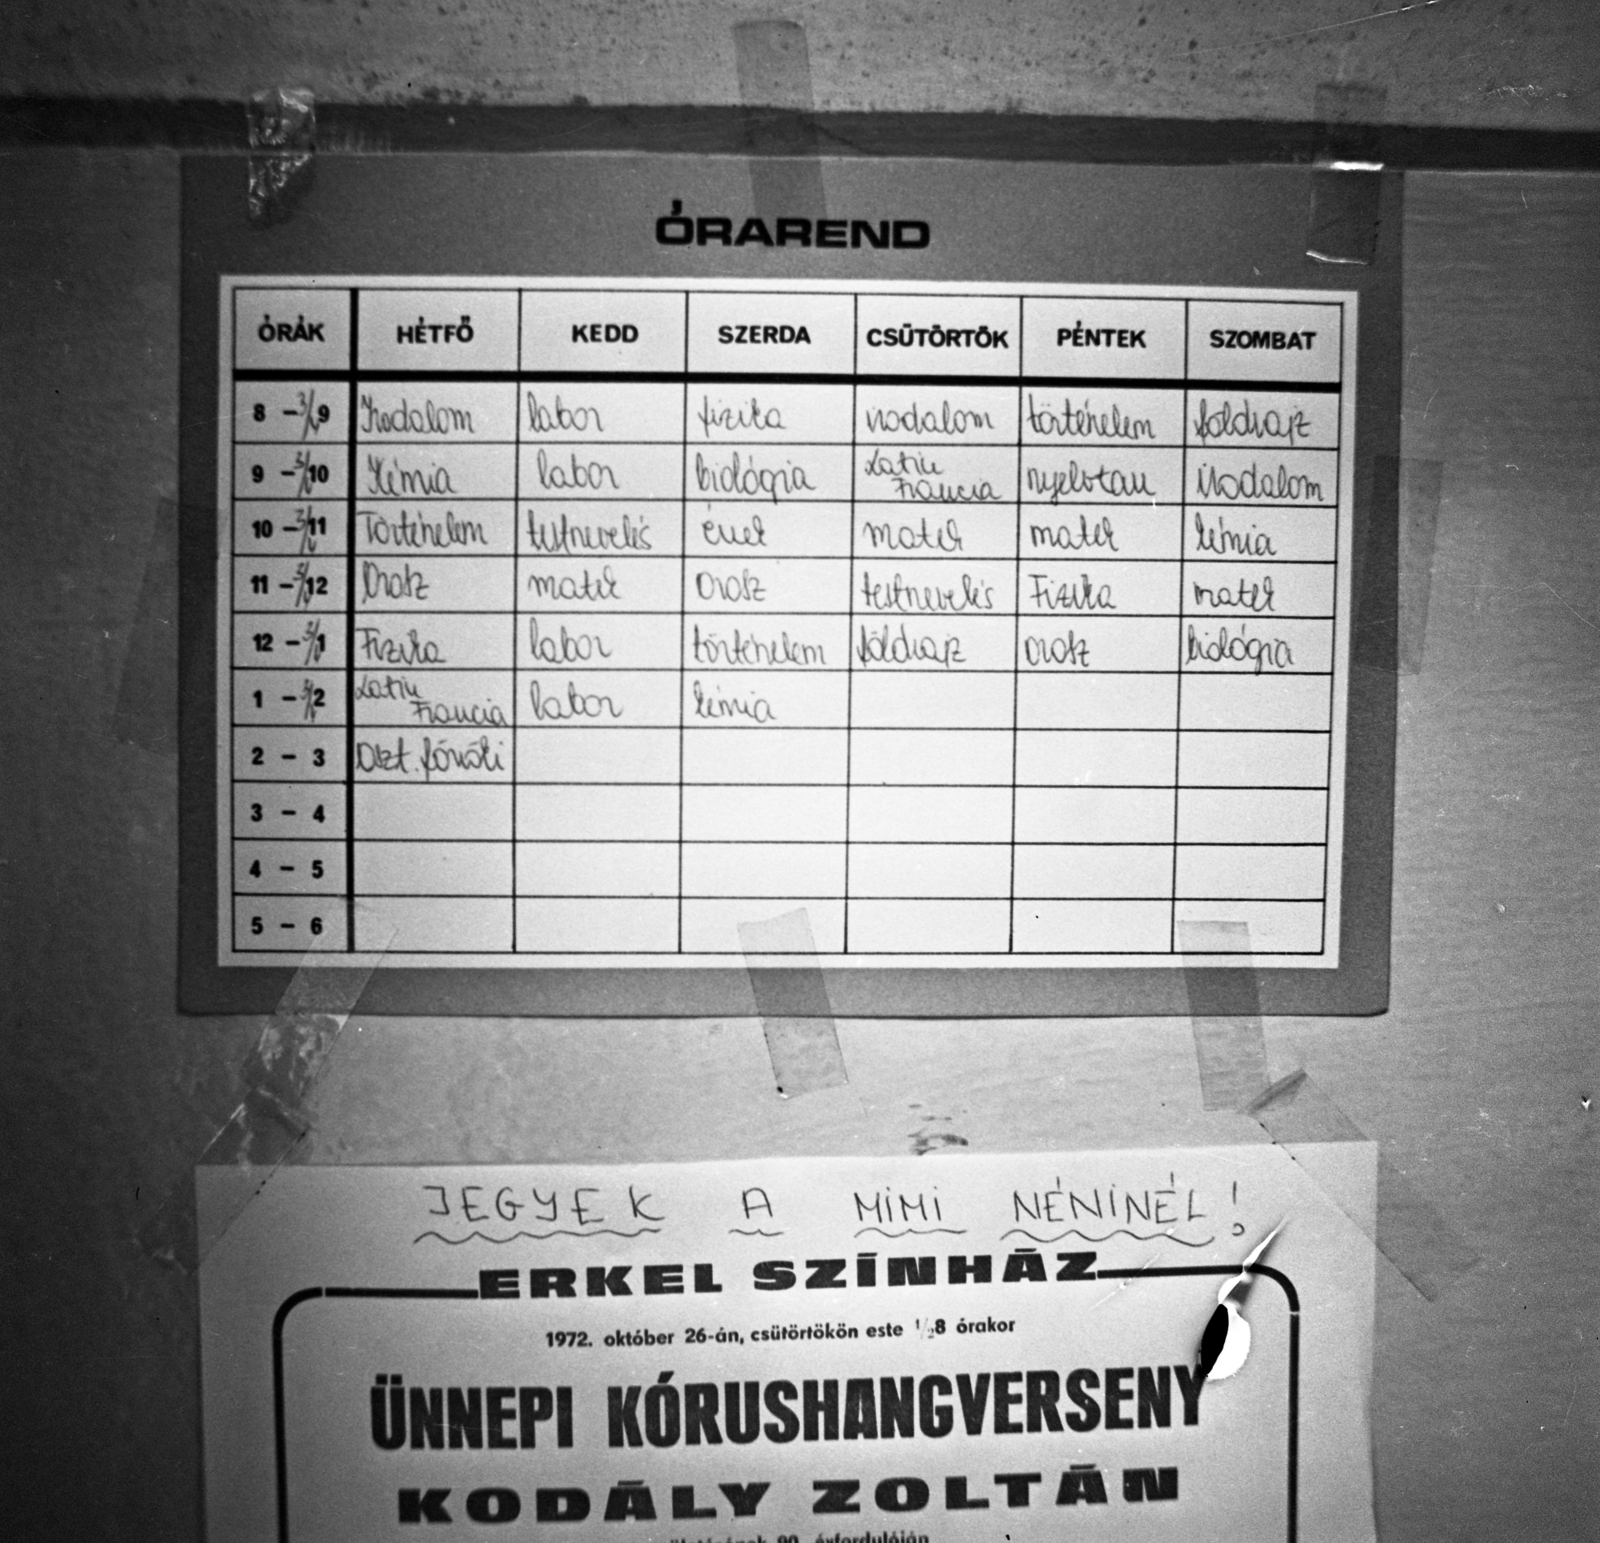 ÓRAREND
ÓRÁK HÉTFŐ KEDD SZERDA CSÜTÖRTÖK PÉNTEK SZOMBAT
8 – 3/4 9 Irodalom labor fizika irodalom történelem földrajz
9 – 3/4 10 Kémia labor biológia Latin Francia nyelvtan irodalom
10 – 3/4 11 Történelem testnevelés ének matek matek kémia
11 – 3/4 12 Orosz matek orosz testnevelés Fizika matek
12 – 3/4 1 Fizika labor történelem földrajz orosz biológia
1 – 3/4 2 Latin Francia labor kémia
2 – 3 Oszt. főnöki
3 – 4
4 – 5
5 – 6
JEGYEK A MIMI NÉNINÉL!
ERKEL SZÍNHÁZ
1972. október 26-án, csütörtökön este 1/28 órakor
ÜNNEPI KÓRUSHANGVERSENY
KODÁLY ZOLTÁN
90. évfordulóján